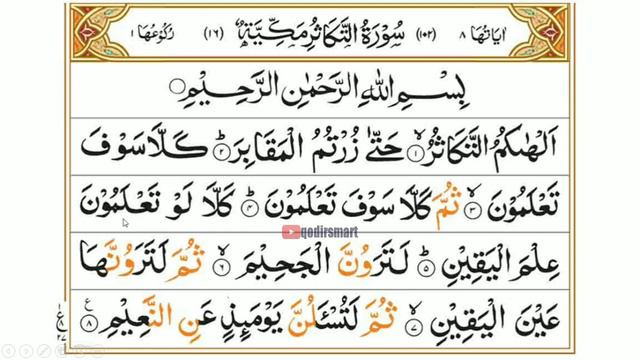 اٰيَاتُهَا ٨ (١٠٢) سُوْرَةُ التَّكَاثُرِ مَكِّيَّةٌ (١٦) رُكُوْعُهَا ١
بِسْمِ اللهِ الرَّحْمٰنِ الرَّحِيْمِ
اَلْهٰكُمُ التَّكَاثُرُۙ ۝١ حَتّٰى زُرْتُمُ الْمَقَابِرَؕ ۝٢ كَلَّا سَوْفَ
تَعْلَمُوْنَۙ ۝٣ ثُمَّ كَلَّا سَوْفَ تَعْلَمُوْنَؕ ۝٤ كَلَّا لَوْ تَعْلَمُوْنَ
qodirsmart
عِلْمَ الْيَقِيْنِؕ ۝٥ لَتَرَوُنَّ الْجَحِيْمَۙ ۝٦ ثُمَّ لَتَرَوُنَّهَا
عَيْنَ الْيَقِيْنِۙ ۝٧ ثُمَّ لَتُسْـَٔلُنَّ يَوْمَىِٕذٍ عَنِ النَّعِيْمِ ۝٨